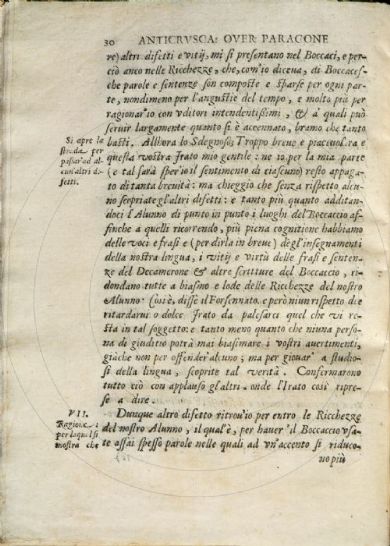 30 ANTICRVSCA: OVER PARAGONE
re) altri difetti e vitij, mi si presentano nel Boccaci, e per-
ciò anco nelle Ricchezze, che, com'io diceua, di Boccaces-
che parole e sentenze son composte & sparse per ogni par-
te, nondimeno per l'angustie del tempo, e molto più per
ragionar'io con vditori intendentissimi, & a' quali può
seruir largamente quanto si è accennato, bramo che tanto
basti. Allhora lo Sdegnoso; Troppo breue e piaceuol'era e
questa vostra Irato mio gentile: ne io per la mia parte
(e tal sarà sper'io il sentimento di ciascuno) resto appaga-
to di tanta breuità: ma chieggio che senza rispetto alcu-
no scopriate gl'altri difetti: e tanto più quanto additan-
doci l'Alunno di punto in punto i luoghi del Boccaccio af-
finche a quelli ricorrendo, più piena cognitione habbiamo
delle voci e frasi e (per dirla in breue) degl'insegnamenti
della nostra lingua, i vitij e virtù delle frasi e senten-
ze del Decamerone & altre scritture del Boccaccio, ri-
dondano tutte a biasmo e lode delle Ricchezze del nostro
Alunno. Così è, disse il Forsennato, e però niun rispetto di-
ritardarui o dolce Irato da palesarci quel che vi re-
sta in tal soggetto: e tanto meno quanto che niuna perso-
na di giuditio potrà mai biasimare i vostri auertimenti,
già che non per offender'alcuno; ma per giouar' a studio-
si della lingua, scoprite tal verità. Confermarono
tutto ciò con applauso gl'altri, onde l'Irato così ripre-
se a dire.
Dunque altro difetto ritrou'io per entro le Ricchezze
del nostro Alunno, il qual'è, per hauer' il Boccaccio vsa-
te assai spesso parole nelle quali ad vn'accento si riduco-
no più
Si apre la
strada per
passar'ad al-
cun'altri di-
fetti.
VII.
Ragione
per la qual si
mostra che